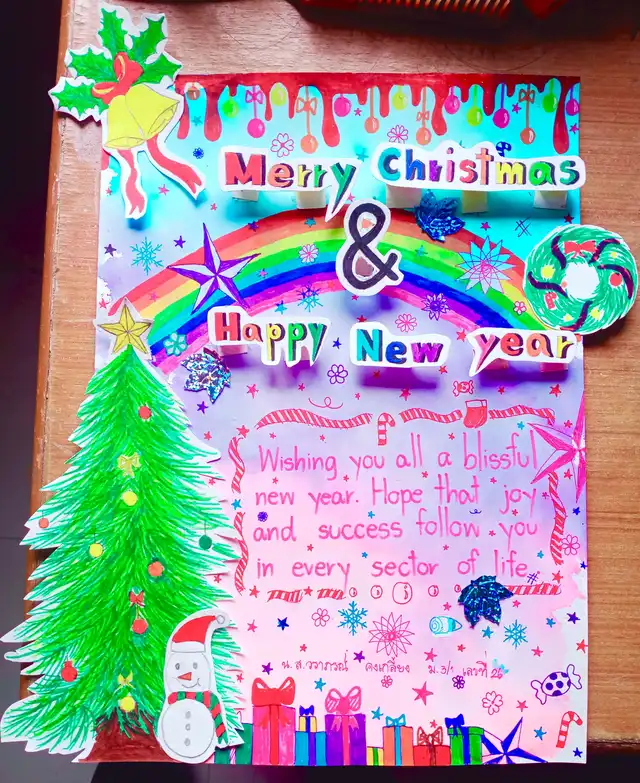 Merry Christmas
&
Happy New year
Wishing you all a blissful
new year. Hope that joy
and success follow you
in every sector of life.
น.ส.วจาภรณ์ คงเกลี้ยง ม.3/1 เลขที่ 26